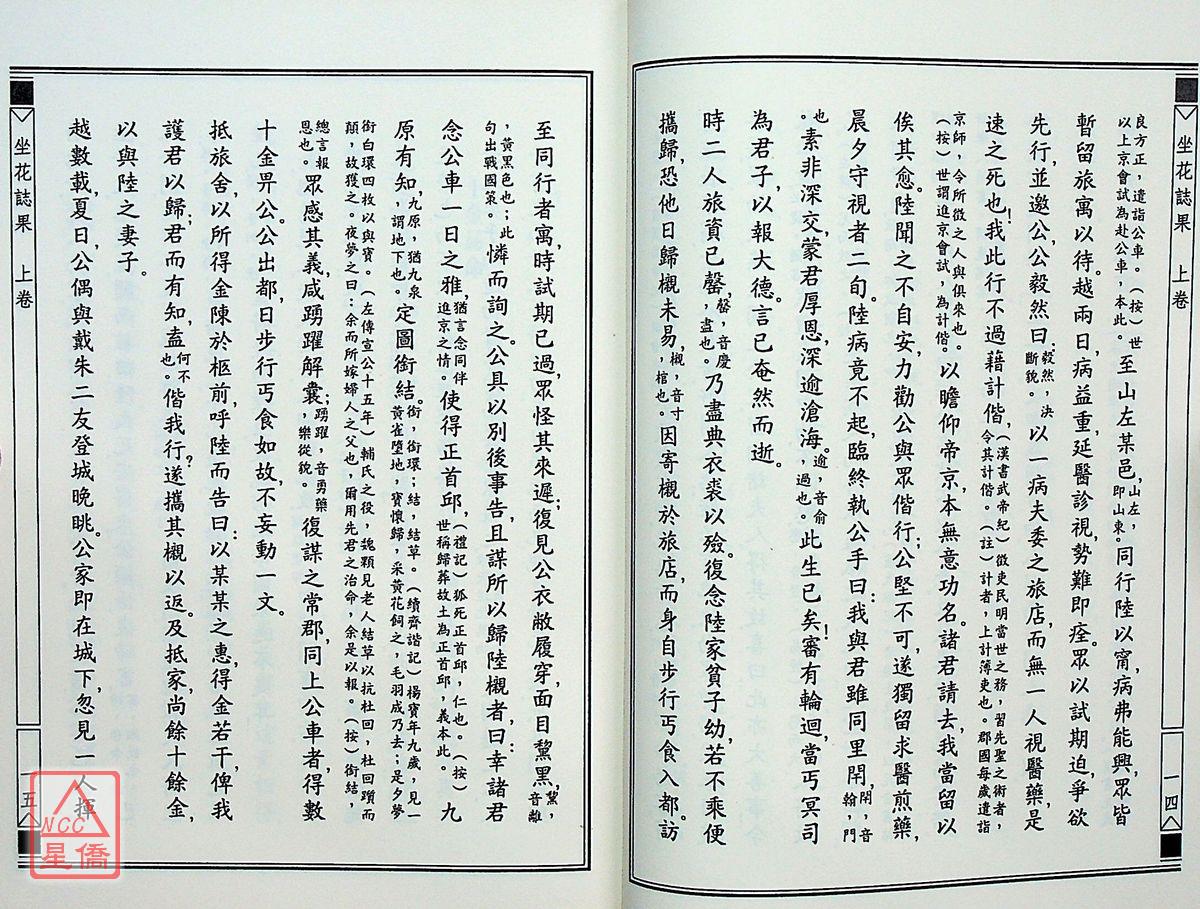 坐花誌果 上卷
一四
良方正，遣詣公車。（按）世
以上京會試為赴公車，本此。至山左某邑，山左，
即山東。同行陸以甯，病弗能興，眾皆
暫留旅寓以待。越兩日，病益重，延醫診視，勢難即痊。眾以試期迫，爭欲
先行，並邀公，公毅然曰：毅然，決
斷貌。以一病夫委之旅店，而無一人視醫藥，是
速之死也！我此行不過藉計偕，（漢書武帝紀）徵吏民明當世之務，習先聖之術者，
令其計偕。（註）計者，上計簿吏也。郡國每歲遣詣
京師，令所徵之人與俱來也。
（按）世謂進京會試，為計偕。以瞻仰帝京，本無意功名。諸君請去，我當留以
俟其愈。陸聞之不自安，力勸公與眾偕行；公堅不可，遂獨留求醫煎藥，
晨夕守視者二旬。陸病竟不起，臨終執公手曰：我與君雖同里閈，閈，音
翰，門
也。素非深交，蒙君厚恩，深逾滄海。逾，音俞
，過也。此生已矣！審有輪迴，當丐冥司
為君子，以報大德。言已奄然而逝。
時二人旅資已罄，罄，音慶
，盡也。乃盡典衣裘以殮。復念陸家貧子幼，若不乘便
攜歸，恐他日歸櫬未易，櫬，音寸
，棺也。因寄櫬於旅店，而身自步行丐食入都。訪
至同行者寓，時試期已過，眾怪其來遲；復見公衣敝履穿，面目黧黑，黧，
音離
，黃黑色也；此
句出戰國策。憐而詢之。公具以別後事告，且謀所以歸陸櫬者，曰：幸諸君
念公車一日之雅，猶言念同伴
進京之情。使得正首邱，（禮記）狐死正首邱，仁也。（按）
世稱歸葬故土為正首邱，義本此。九
原有知，九原，猶九泉
，謂地下也。定圖銜結。銜，銜環；結，結草。（續齊諧記）楊寶年九歲，見一
黃雀墮地，寶懷歸，采黃花飼之，毛羽成乃去；是夕夢
銜白環四枚以與寶。（左傳宣公十五年）輔氏之役，魏顆見老人結草以抗杜回，杜回躓而
顛，故獲之。夜夢之曰：余而所嫁婦人之父也，爾用先君之治命，余是以報。（按）銜結，
總言報
恩也。眾感其義，咸踴躍解囊，踴躍，音勇藥
；樂從貌。復謀之常郡，同上公車者，得數
十金畀公。公出都，日步行丐食如故，不妄動一文。
抵旅舍，以所得金陳於柩前，呼陸而告曰：以某某之惠，得金若干，俾我
護君以歸；君而有知，盍何不
也。偕我行？遂攜其櫬以返。及抵家，尚餘十餘金，
以與陸之妻子。
越數載，夏日，公偶與戴朱二友登城晚眺。公家即在城下，忽見一人揮
坐花誌果 上卷
一五
NCC
星僑